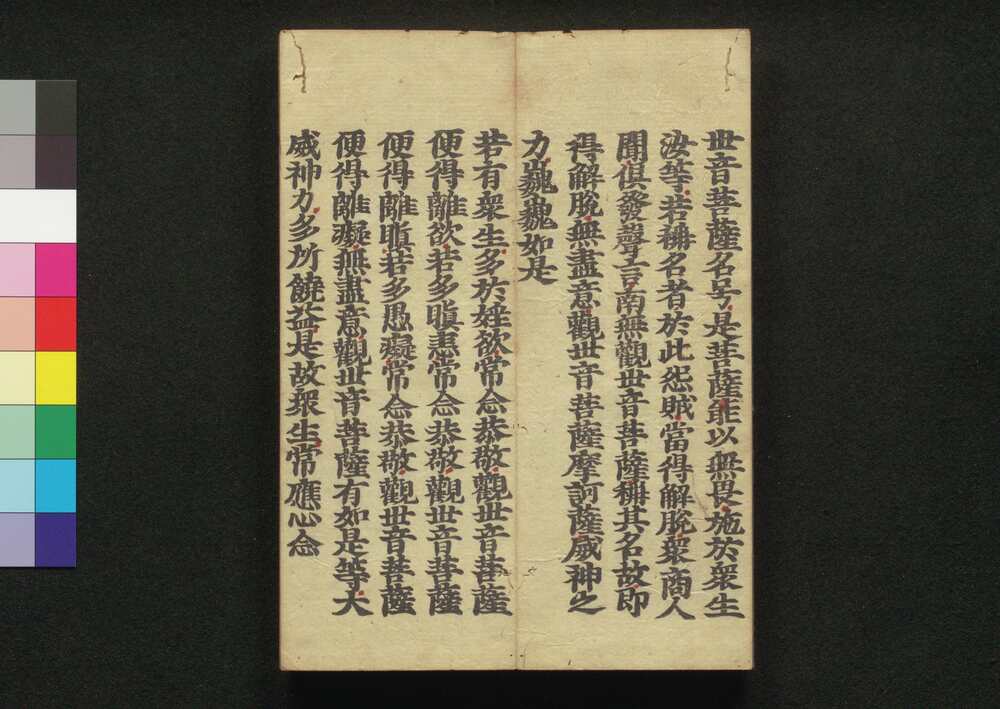 世音菩薩名号是菩薩能以無畏施於衆生
汝等若稱名者於此怨賊當得解脫衆商人
聞俱發聲言南無觀世音菩薩稱其名故即
得解脫無盡意觀世音菩薩摩訶薩威神之
力巍巍如是
若有衆生多於婬欲常念恭敬觀世音菩薩
便得離欲若多瞋恚常念恭敬觀世音菩薩
便得離瞋若多愚癡常念恭敬觀世音菩薩
便得離癡無盡意觀世音菩薩有如是等大
威神力多所饒益是故衆生常應心念